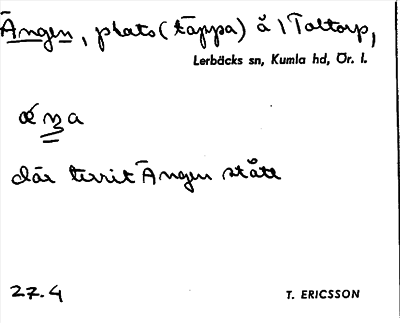 Ängen, plats (täppa) å 1 Toltorp,
Lerbäcks sn, Kumla hd, Ör. l.
där territ Ängen stått
27.4
T. ERICSSON